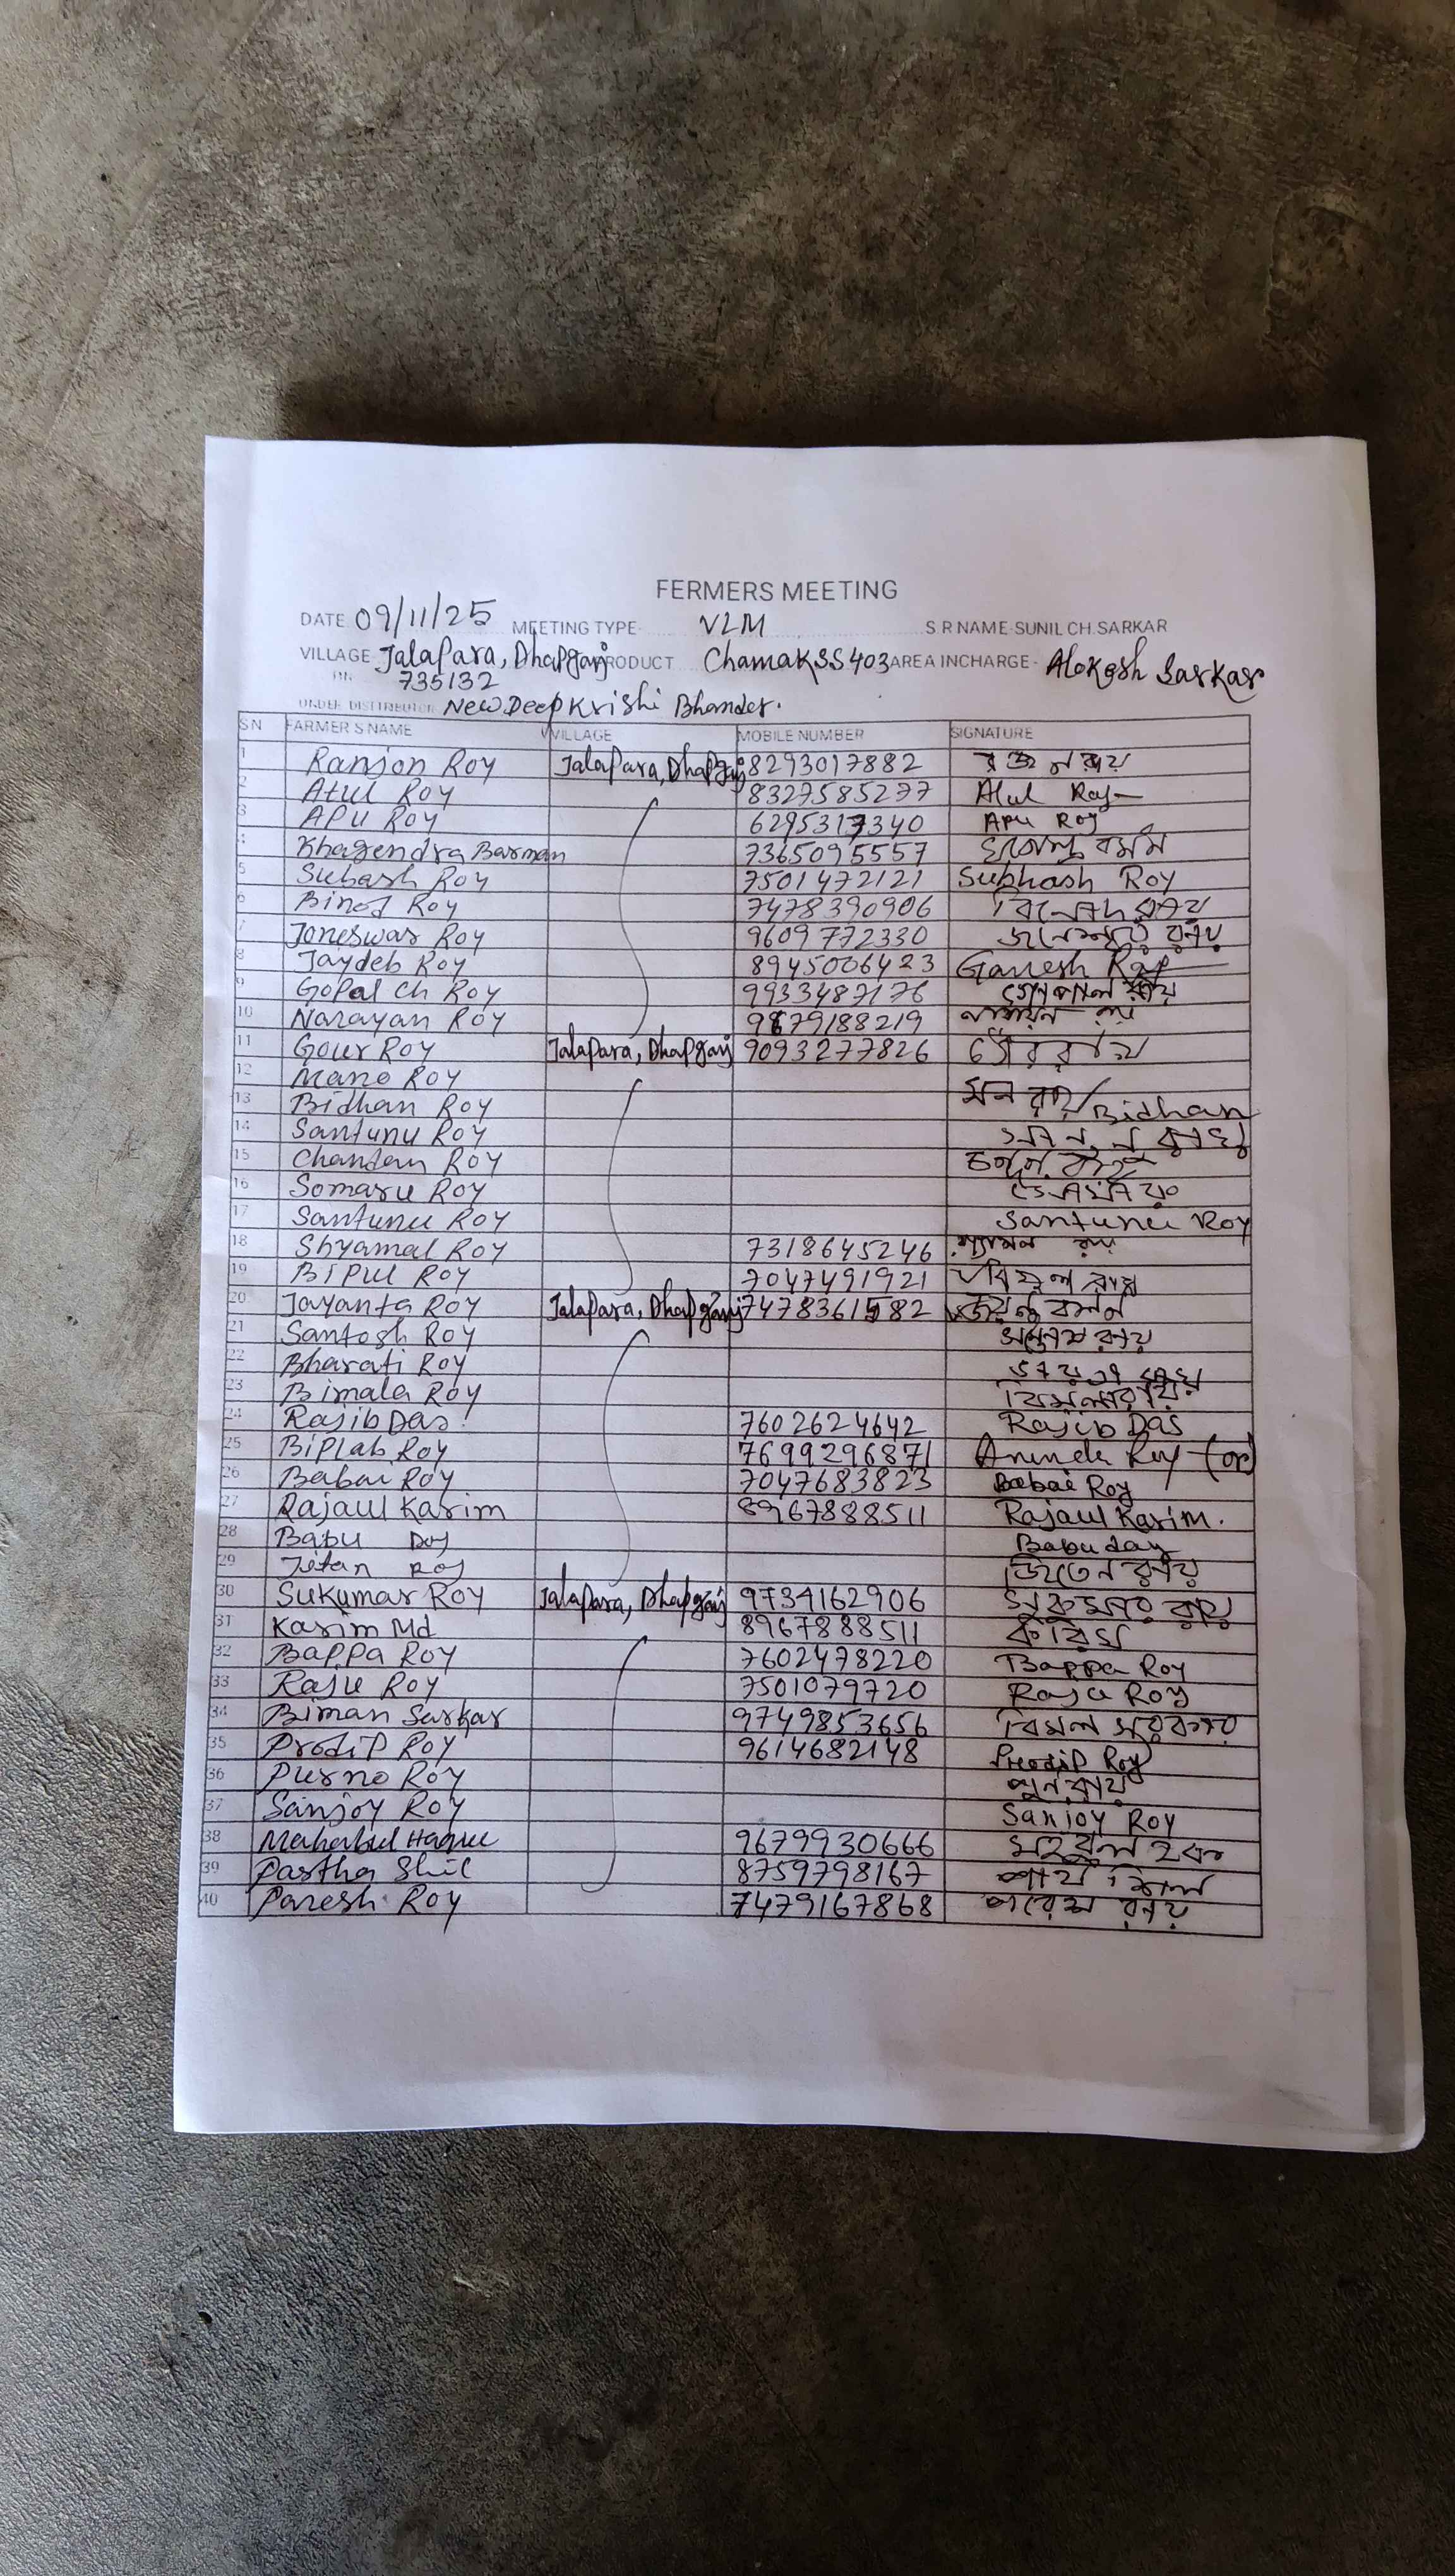 FERMERS MEETING
DATE 09/11/25 MEETING TYPE- VLM S R NAME-SUNIL CH.SARKAR
VILLAGE- Jalapara, Dhapganj PRODUCT Chamak SS 403 AREA INCHARGE- Alokesh Sarkar
735132
UNDER DISTIBUTOR New Deep Krishi Bhander.
SN FARMER S NAME VILLAGE MOBILE NUMBER SIGNATURE
1 Ranjon Roy Jalapara, Dhapganj 8293017882
2 Atul Roy 8327585277 Atul Roy
3 Apu Roy 6295317340 Apu Roy
4 Khagendra Barman 7365095557
5 Subash Roy 7501472121 Subhash Roy
6 Binod Roy 7478390906
7 Joneswar Roy 9609772330
8 Jaydeb Roy 8945006423 Ganesh Roy
9 Gopal ch Roy 9933487176 গোপাল রায়
10 Narayan Roy
11 Gour Roy Jalapara, Dhapganj 9093277826 গৌর রায়
12 Mano Roy মন রায়
13 Bidhan Roy Bidhan
14 Santunu Roy
15 Chandan Roy
16 Somaru Roy
17 Santunu Roy Santunu Roy
18 Shyamal Roy 7318645246
19 Bipul Roy 7047491921
20 Jayanta Roy Jalapara, Dhapganj
21 Santosh Roy সন্তোষ রায়
22 Bharati Roy
23 Bimala Roy
24 Rajib Das 7602624642 Rajib Das
25 Biplab Roy 7699296871 Roy
26 Babai Roy 7047683823 Babai Roy
27 Rajaul Karim 8967888511 Rajaul Karim.
28 Babu
29 জিতেন রায়
30 Sukumar Roy Jalapara, Dhapganj 9734162906 সুকুমার রায়
31 Karim Md 8967888511 করিম
32 Bappa Roy 7602478220 Bappa Roy
33 Raju Roy 7501079720 Roy
34 Biman Sarkar 9749853656 বিমল সরকার
35 Prodip Roy 9614682148 Prodip Roy
36 Purno Roy
37 Sanjoy Roy Sanjoy Roy
38 Mahabul Haque 9679930666
39 Partha Shil 8759798167
40 Paresh Roy 7479167868 পরেশ রায়